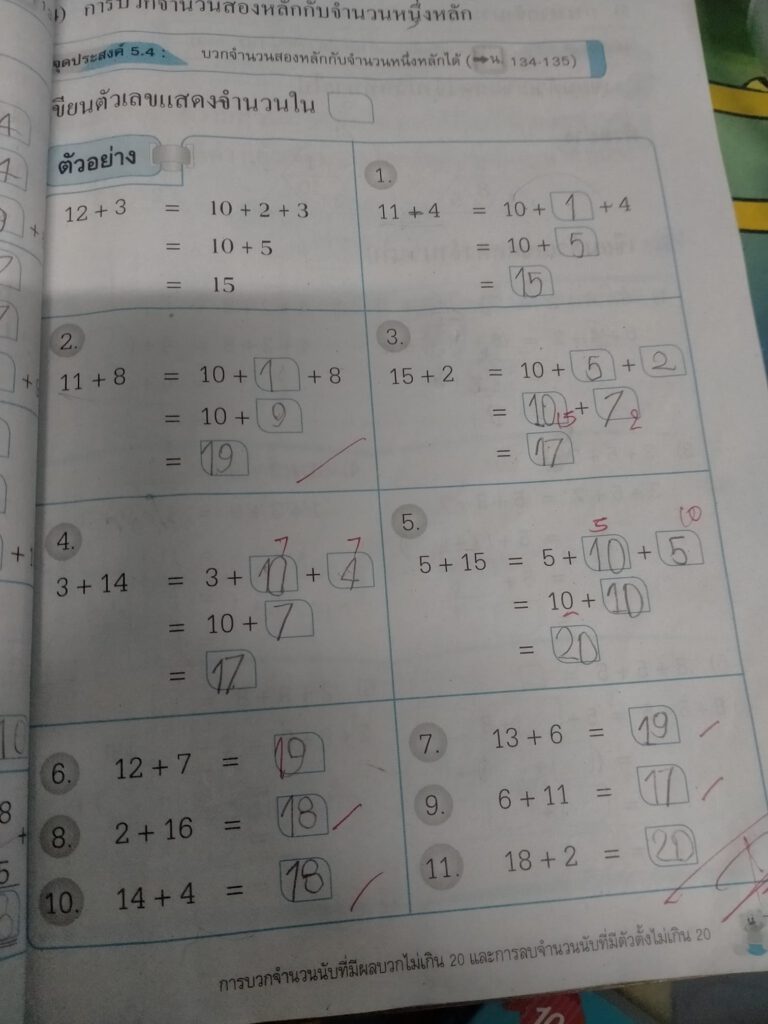 การบวกจำนวนสองหลักกับจำนวนหนึ่งหลัก
จุดประสงค์ 5.4 : บวกจำนวนสองหลักกับจำนวนหนึ่งหลักได้ (➡น. 134-135)
เขียนตัวเลขแสดงจำนวนใน
ตัวอย่าง
12 + 3 = 10 + 2 + 3
= 10 + 5
= 15
1.
11 + 4 = 10 + 1 + 4
= 10 + 5
= 15
2.
11 + 8 = 10 + 1 + 8
= 10 + 9
= 19
3.
15 + 2 = 10 + 5 + 2
= 10 15 + 7 2
= 17
4.
7 7
3 + 14 = 3 + + 4
= 10 + 7
= 17
5.
5 10
5 + 15 = 5 + 10 + 5
= 10 + 10
= 20
6. 12 + 7 = 19
7. 13 + 6 = 19
8. 2 + 16 = 18
9. 6 + 11 = 17
10. 14 + 4 = 18
11. 18 + 2 = 20
การบวกจำนวนนับที่มีผลบวกไม่เกิน 20 และการลบจำนวนนับที่มีตัวตั้งไม่เกิน 20